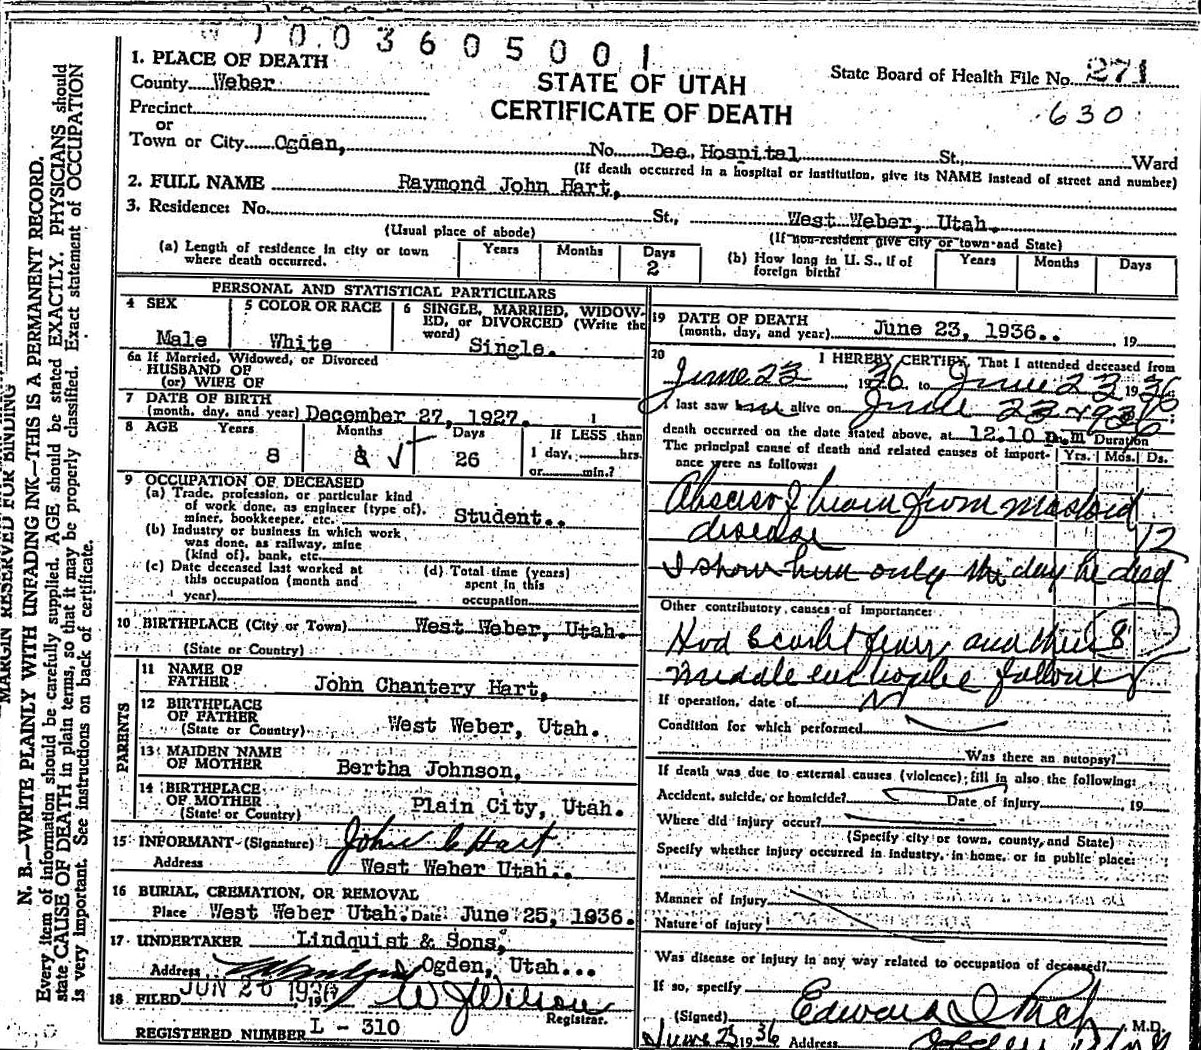 003605001
1. PLACE OF DEATH
County Weber
STATE OF UTAH
CERTIFICATE OF DEATH
State Board of Health File No. 271
630
Precinct
or
Town or City Ogden, No. Dee Hospital St., Ward
(If death occurred in a hospital or institution, give its NAME instead of street and number)
2. FULL NAME Raymond John Hart,
3. Residence: No. St., West Weber, Utah.
(Usual place of abode) (If non-resident give city or town and State)
(a) Length of residence in city or town where death occurred. Years Months Days 2
(b) How long in U. S., if of foreign birth? Years Months Days
PERSONAL AND STATISTICAL PARTICULARS
4 SEX Male
5 COLOR OR RACE White
6 SINGLE, MARRIED, WIDOWED, or DIVORCED (Write the word) Single.
6a If Married, Widowed, or Divorced
HUSBAND OF
(or) WIFE OF
7 DATE OF BIRTH
(month, day, and year) December 27, 1927.
8 AGE Years Months Days If LESS than
8 26 1 day, hrs.
or min.?
9 OCCUPATION OF DECEASED
(a) Trade, profession, or particular kind
of work done, as engineer (type of),
miner, bookkeeper, etc. Student..
(b) Industry or business in which work
was done, as railway, mine
(kind of), bank, etc.
(c) Date deceased last worked at
this occupation (month and
year)
(d) Total time (years)
spent in this
occupation
10 BIRTHPLACE (City or Town) West Weber, Utah.
(State or Country)
PARENTS
11 NAME OF
FATHER John Chantery Hart,
12 BIRTHPLACE
OF FATHER
(State or Country) West Weber, Utah.
13 MAIDEN NAME
OF MOTHER Bertha Johnson,
14 BIRTHPLACE
OF MOTHER
(State or Country) Plain City, Utah.
15 INFORMANT (Signature) John C Hart
Address West Weber Utah..
16 BURIAL, CREMATION, OR REMOVAL
Place West Weber Utah. Date June 25, 1936.
17 UNDERTAKER Lindquist & Sons,
Address Ogden, Utah...
18 FILED JUN 26 1936 W J Wilson
Registrar.
REGISTERED NUMBER L - 310
19 DATE OF DEATH
(month, day, and year) June 23, 1936.. , 19
20 I HEREBY CERTIFY, That I attended deceased from
June 23, 1936 to June 23 1936
I last saw him alive on June 23 1936
death occurred on the date stated above, at 12.10 p.m Duration
The principal cause of death and related causes of importance were as follows: Yrs. Mos. Ds.
Abscess of brain from mastoid
disease 12
I saw him only the day he died
Other contributory causes of importance:
Had scarlet fever and this 8
middle ear
If operation, date of
Condition for which performed
Was there an autopsy?
If death was due to external causes (violence); fill in also the following:
Accident, suicide, or homicide? Date of injury , 19
Where did injury occur?
(Specify city or town, county, and State)
Specify whether injury occurred in industry, in home, or in public place:
Manner of Injury
Nature of injury
Was disease or injury in any way related to occupation of deceased?
If so, specify
(Signed) Edward I Rich, M.D.
June 23 1936 Address
MARGIN RESERVED FOR BINDING
N. B.—WRITE PLAINLY WITH UNFADING INK—THIS IS A PERMANENT RECORD.
Every item of information should be carefully supplied. AGE should be stated EXACTLY. PHYSICIANS should
state CAUSE OF DEATH in plain terms, so that it may be properly classified. Exact statement of OCCUPATION
is very important. See instructions on back of certificate.